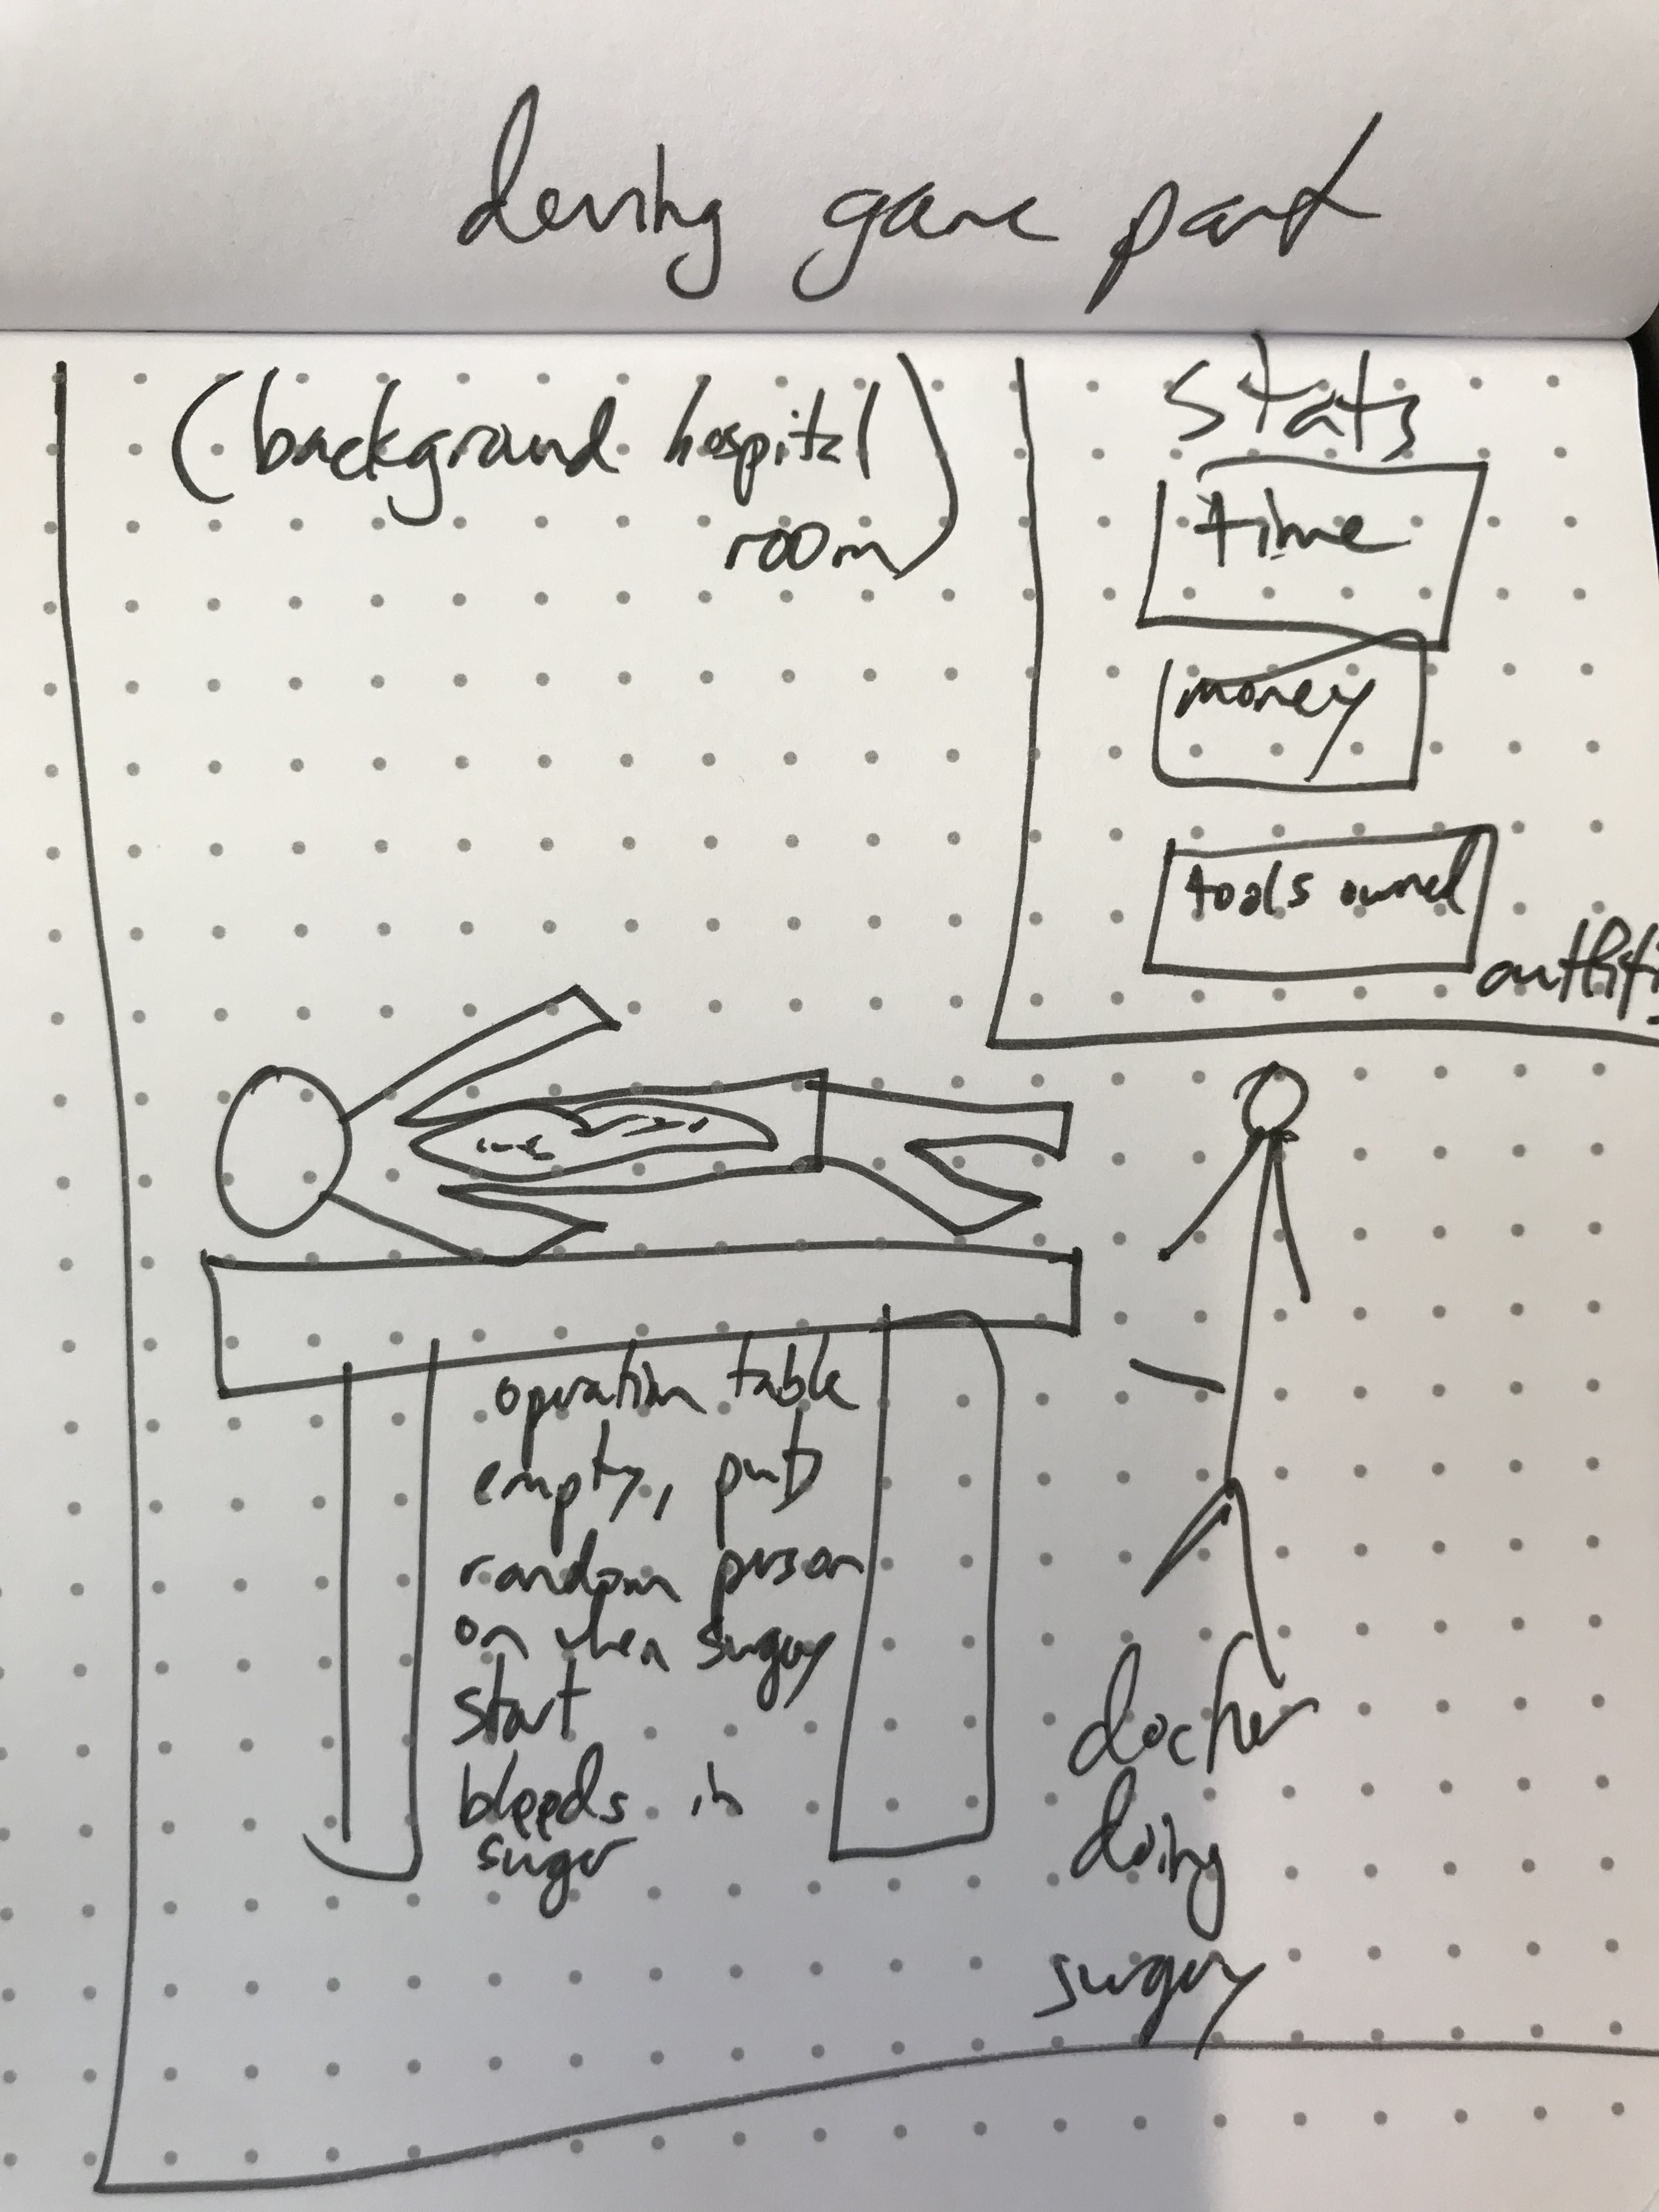 game part
(background hospital
room)
stats
time
money
tools owned
operation table
empty, puts
random person
on when surgery
start
bleeds in
surger
doing
surgery